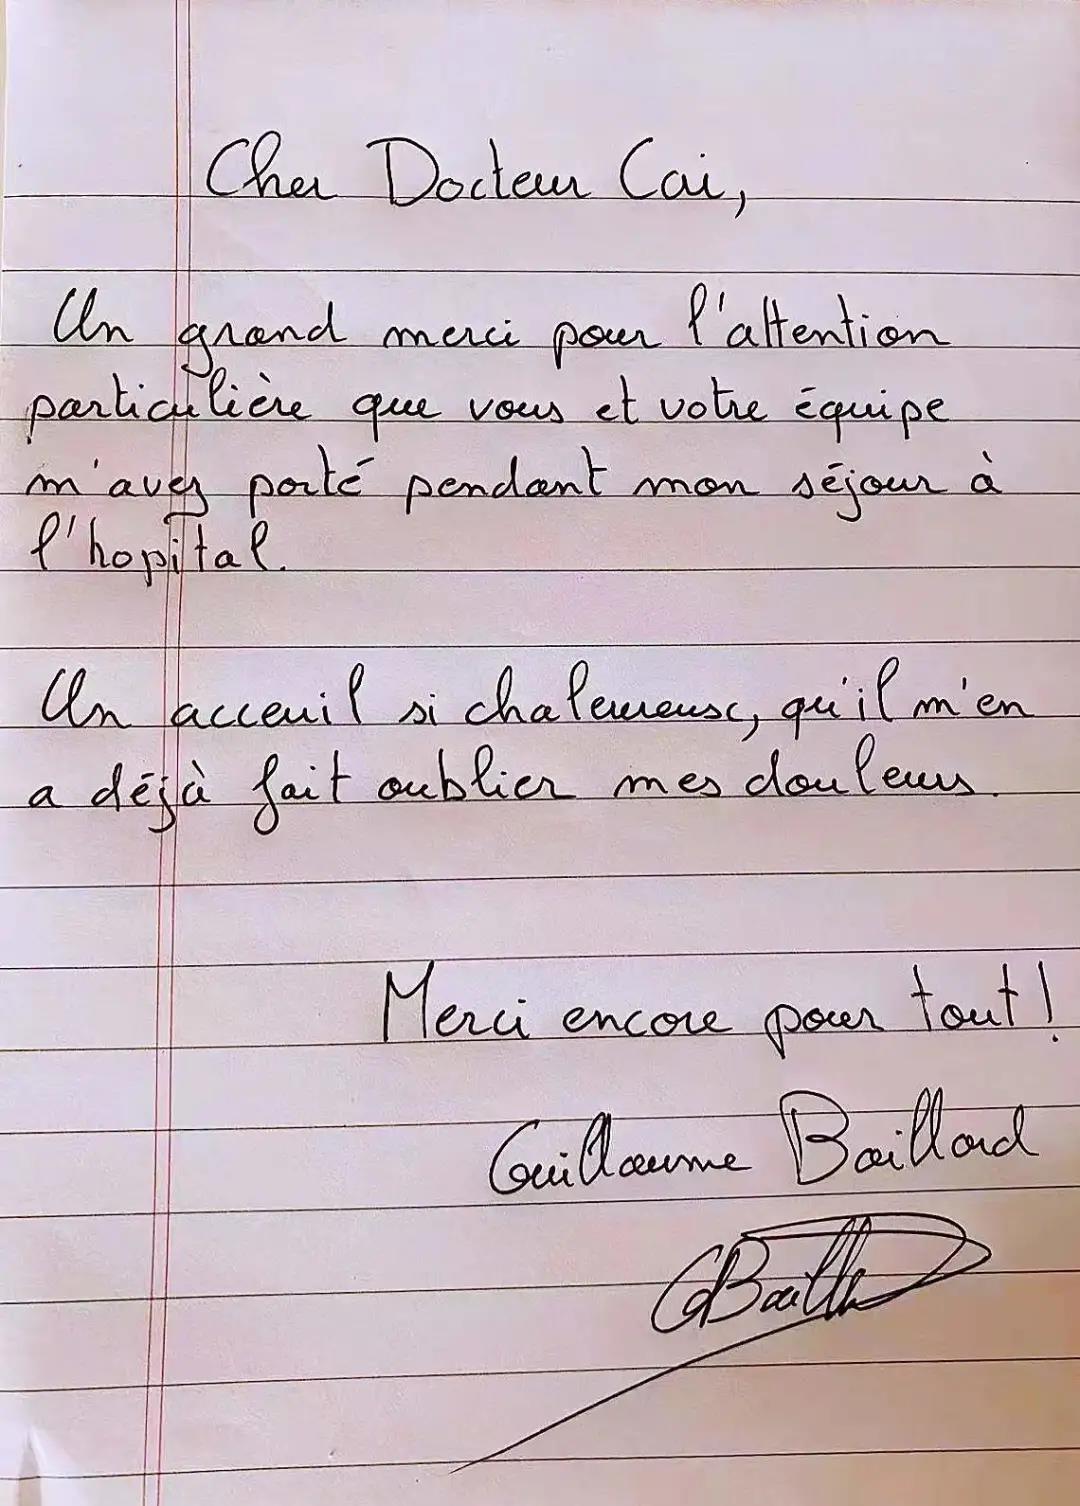 Cher Docteur Cai,
Un grand merci pour l'attention
particulière que vous et votre équipe
m'avez porté pendant mon séjour à
l'hopital.
Un acceuil si chaleureuse, qu'il m'en
a déjà fait oublier mes douleurs.
Merci encore pour tout !
Guillaume Baillard